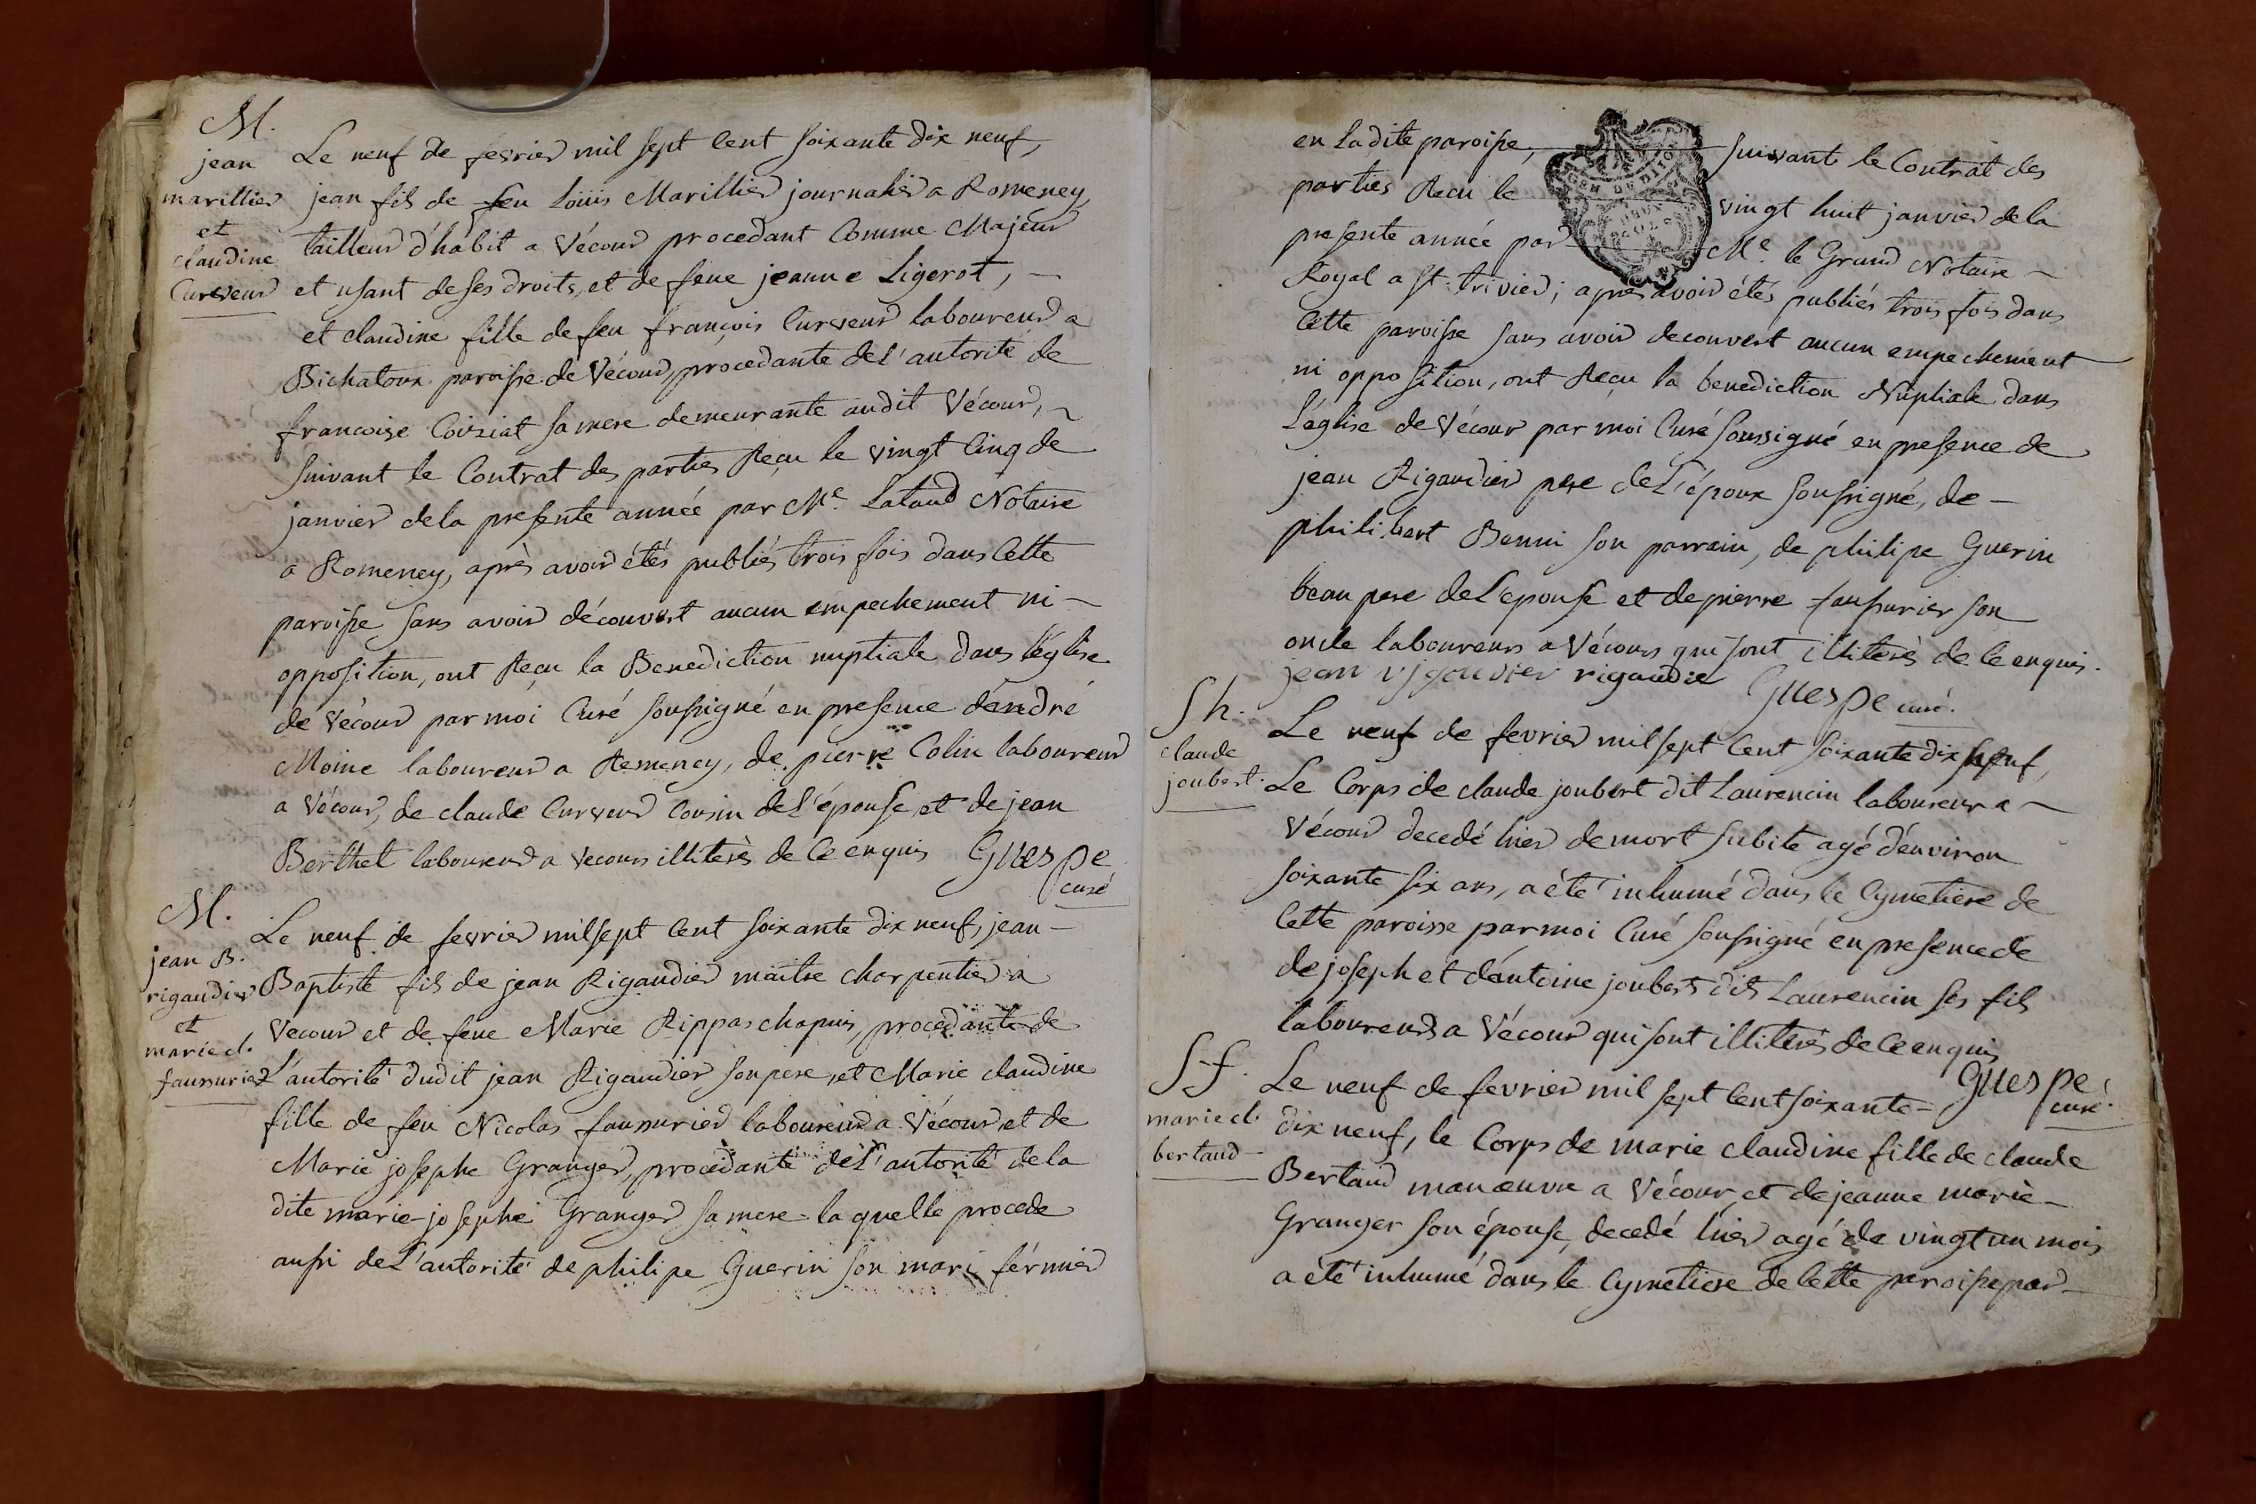 M.
jean
marillier
et
claudine
Curveur
Le neuf de fevrier mil sept cent soixante dix neuf,
jean fils de feu Loüis Marillier journalier a Romeney,
tailleur d'habit a Vécour procedant comme Majeur
et usant de ses droits, et de feue jeanne Ligerot,
et claudine fille de feu françois Curveur laboureur a
Bichatoux paroisse de Vécour, procedante de L'autorité de
francoise Coiziat sa mere demeurante audit Vécour,
suivant le Contrat des parties Reçu le vingt Cinq de
janvier de la presente année par Me. Lataud Notaire
a Romeney, après avoir étés publiés trois fois dans Cette
paroisse sans avoir découvert aucun empechement ni
opposition, ont Reçu la Benediction nuptiale dans l'église
de Vécour par moi Curé soussigné en presence d'andré
Moine laboureur a Remeney, de pierre Colin laboureur
a Vécour, de claude Curveur Cousin de L'épouse, et de jean
Berthet laboureur a Vecours illiterès de Ce enquis Guespe
curé
M.
jean B.
rigaudier
et
marie cl.
faussurier
Le neuf de fevrier mil sept cent soixante dix neuf, jean
Baptiste fils de jean Rigaudier maitre charpentier a
Vecour et de feue Marie Rippaschapuis, procedante de
L'autorité dudit jean Rigaudier son pere, et Marie claudine
fille de feu Nicolas faussurier laboureur a Vécour, et de
Marie josephe Granger, procedante de L'autorité de la
dite marie-josephe Granger sa mere la quelle procede
aussi de L'autorité de philipe Guerin son mari férmier
en La dite paroisse, suivant le Contrat des
parties Reçu le vingt huit janvier de la
presente année par Me. le Grand Notaire
Royal a St. trivier; après avoir étés publiés trois fois dans
Cette paroisse sans avoir decouvert aucun empechement
ni opposition, ont Reçu la benediction Nuptiale dans
L'église de Vécour par moi Curé soussigné en presence de
jean Rigaudier pere de L'époux soussigné, de
philibert Benni son parrain, de philipe Guerin
beau pere de L'epouse et de pierre faussurier son
oncle laboureurs a Vécours qui sont illiterès de Ce enquis.
jean rigaudier rigaudie Guespe curé.
Sh.
claude
joubert.
Le neuf de fevrier mil sept Cent soixante dix neuf,
Le Corps de claude joubert dit Laurencin laboureur a
Vécour decedé hier de mort subite agé d'environ
soixante six ans, a été inhumé dans le Cymetiere de
Cette paroisse par moi Curé soussigné en presence de
de joseph et d'antoine joubert dit Laurencin ses fils
laboureurs a Vécour qui sont illiterès de Ce enquis
Guespe
curé.
Sf.
marie cl.
bertaud
Le neuf de fevrier mil sept Cent soixante
dix neuf, le Corps de marie claudine fille de claude
Bertaud manœuvre a Vécour et de jeanne marie
Granger son épouse, decedé hier agé de vingt un mois
a été inhumé dans le Cymetiere de Cette paroisse par